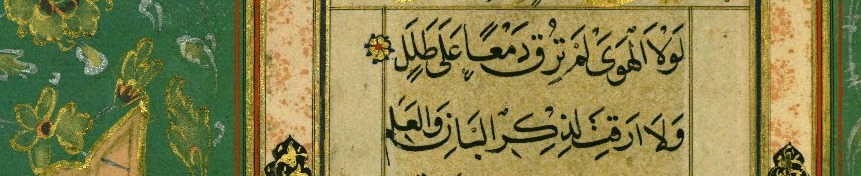 لَوْلَا الْهَوَىٰ لَمْ تُرِقْ دَمْعًا عَلَىٰ طَلَلٍ
وَلَا اَرِقْتَ لِذِكْرِ الْبَانِ وَالْعَلَمِ